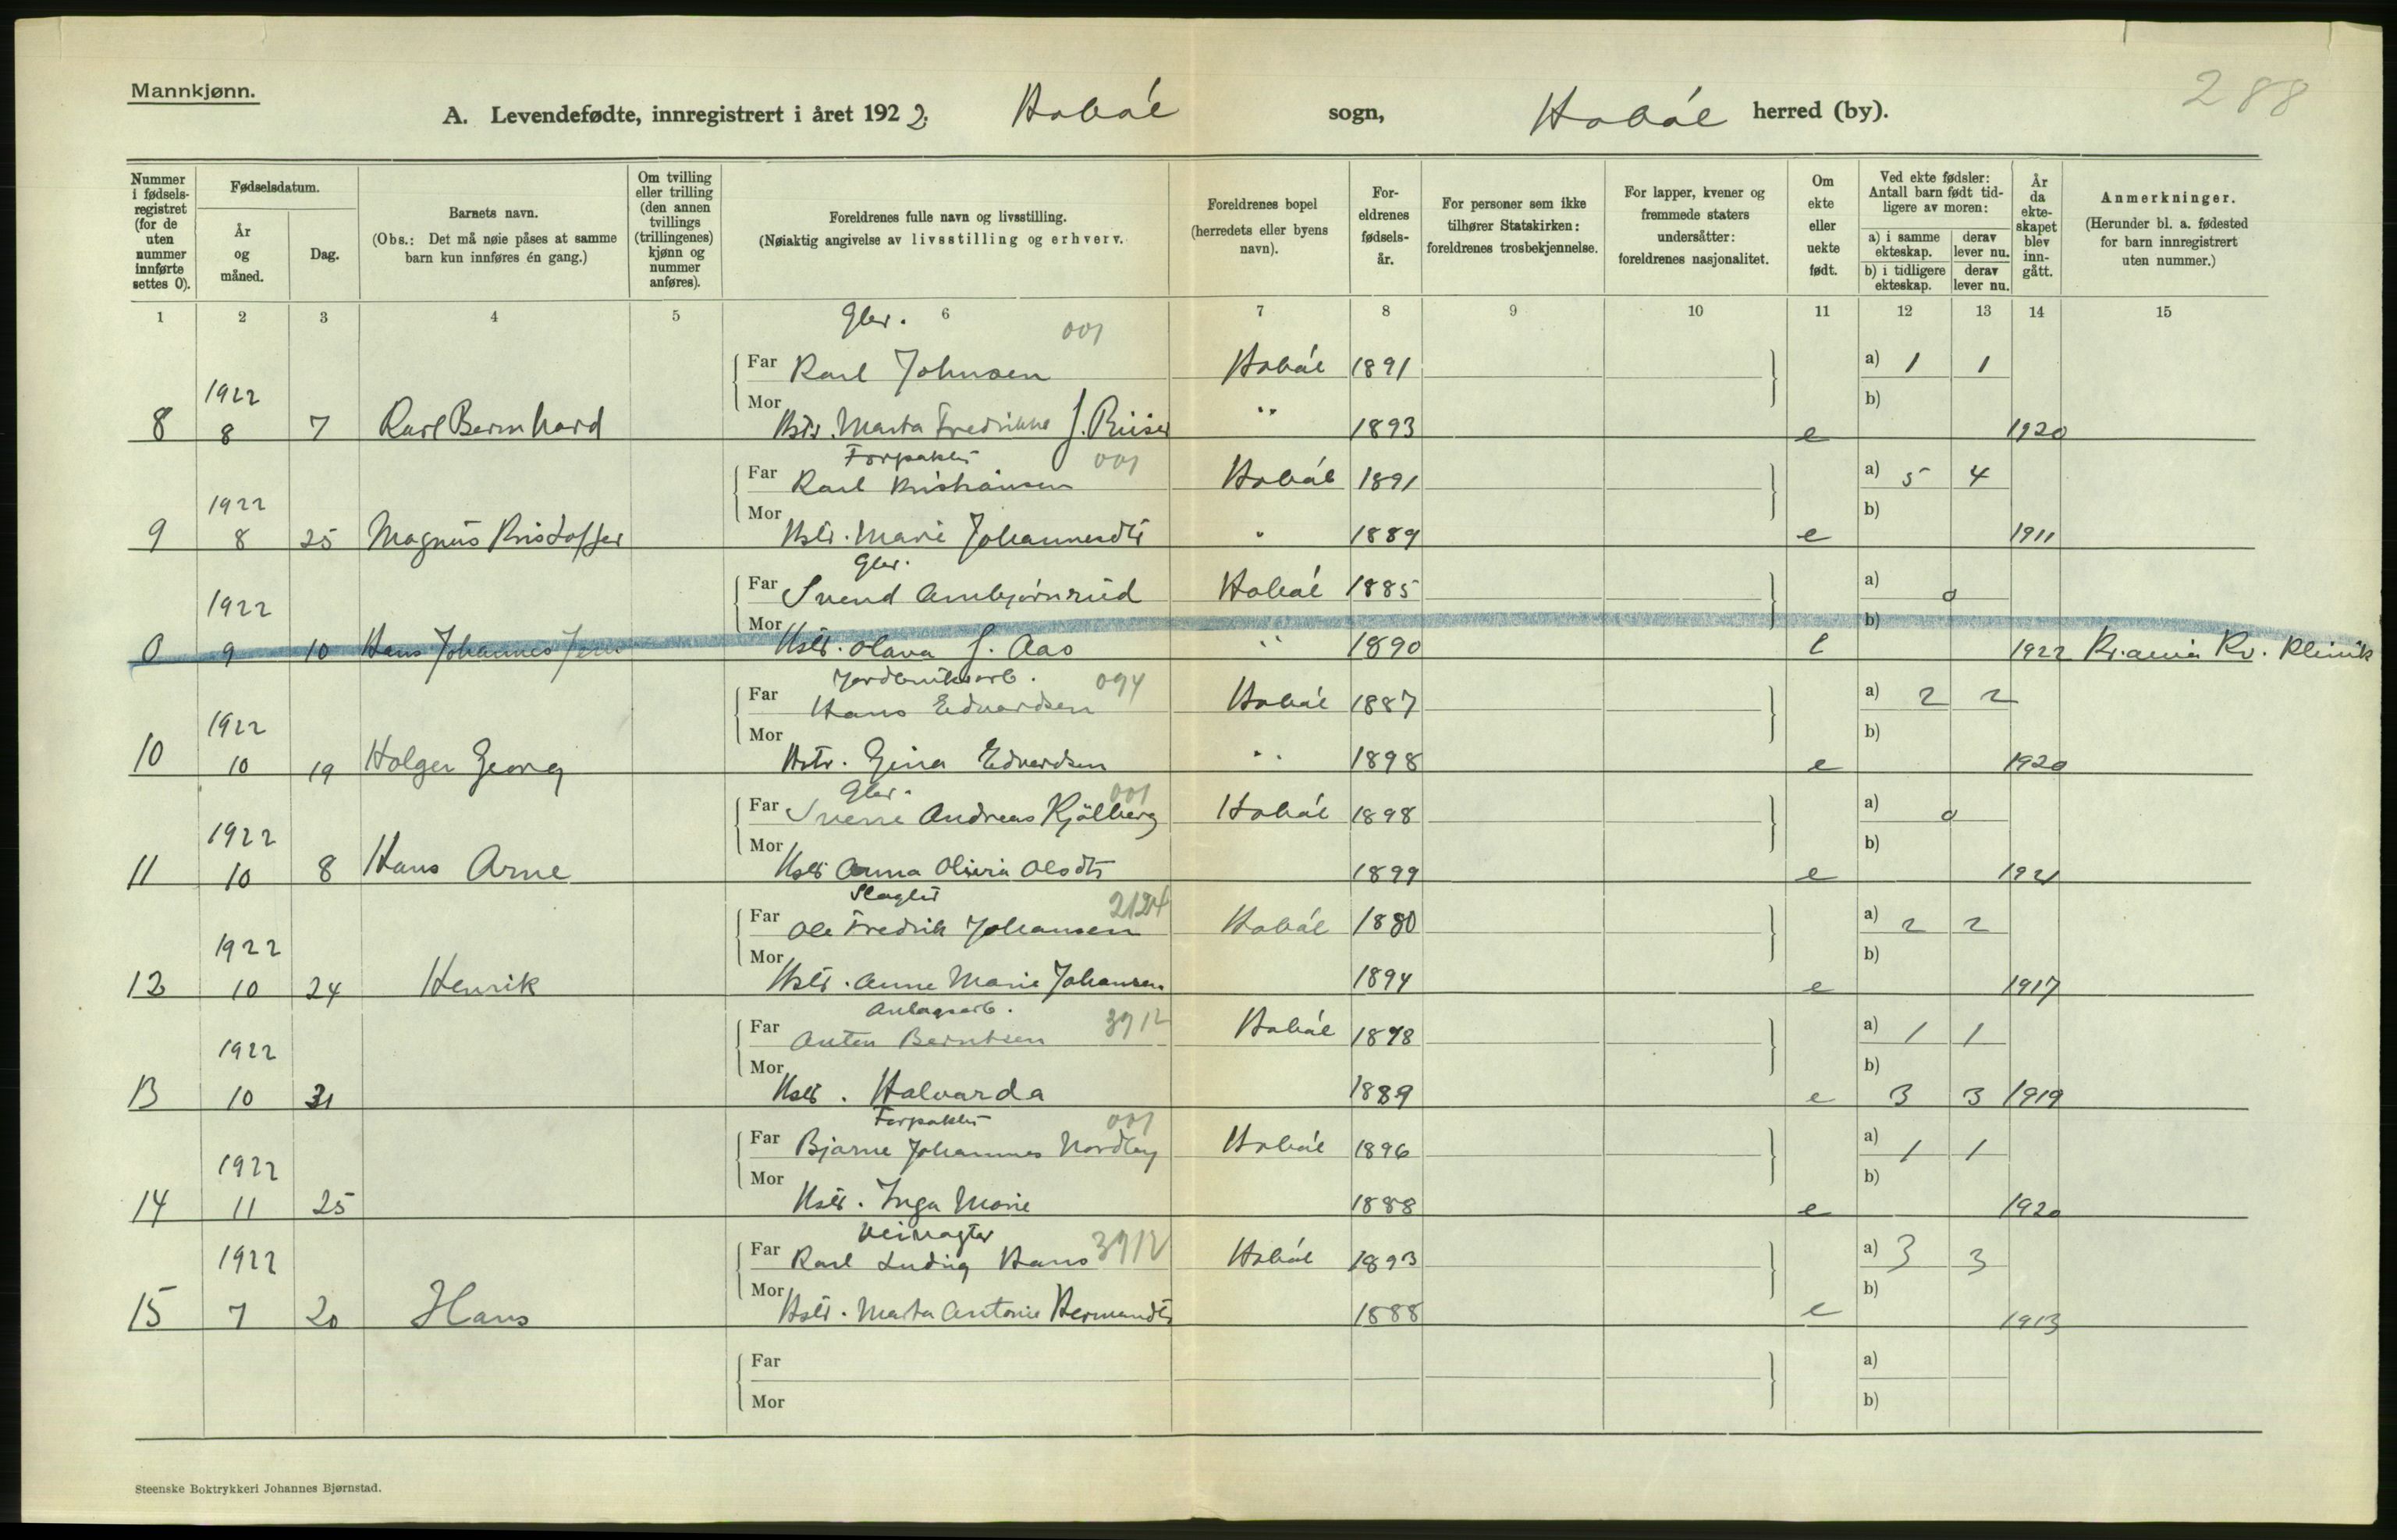 Mannkjønn.
288
A. Levendefødte, innregistrert i året 1922. Hobøl sogn, Hobøl herred (by).
Nummer i fødsels-registret (for de uten nummer innførte settes 0).
Fødselsdatum.
År og måned.
Dag.
Barnets navn.
(Obs.: Det må nøie påses at samme barn kun innføres én gang.)
Om tvilling eller trilling (den annen tvillings (trillingenes) kjønn og nummer anføres).
Foreldrenes fulle navn og livsstilling.
(Nøiaktig angivelse av livsstilling og erhverv.
Foreldrenes bopel (herredets eller byens navn).
For-eldrenes fødsels-år.
For personer som ikke tilhører Statskirken: foreldrenes trosbekjennelse.
For lapper, kvener og fremmede staters undersåtter: foreldrenes nasjonalitet.
Om ekte eller uekte født.
Ved ekte fødsler: Antall barn født tid-ligere av moren:
a) i samme ekteskap. derav lever nu.
b) i tidligere ekteskap. derav lever nu.
År da ekte-skapet blev inn-gått.
Anmerkninger.
(Herunder bl. a. fødested for barn innregistrert uten nummer.)
1 2 3 4 5 6 7 8 9 10 11 12 13 14 15
Gbr. 001
Far Karl Johnsen Hobøl 1891 a) 1 1
1922
Mor b)
8 8 7 Karl Bernhard Hstr. Marta Fredrikke f. Riiser " 1893 e 1920
Forpakter 001
Far Karl Kristiansen Hobøl 1891 a) 5 4
1922
Mor b)
9 8 25 Magnus Kristoffer Hstr. Marie Johannesdtr " 1889 e 1911
Gbr.
Far Svend Arnbjørnrud Hobøl 1885 a) 0
1922
Mor b)
0 9 10 Hans Johannes Jens Hstr. Olava f. Aas " 1890 e 1922 Kr.ania Kv. Klinik
Jordbruksarb. 094
Far Hans Edvardsen Hobøl 1887 a) 2 2
1922
Mor b)
10 10 19 Holger Georg Hstr. Gina Edvardsen " 1898 e 1920
Gbr. 001
Far Sverre Andreas Kjølberg Hobøl 1898 a) 0
1922
Mor b)
11 10 8 Hans Arne Hstr Anna Olivia Olsdtr 1899 e 1921
Slagter
Far Ole Fredrik Johansen Hobøl 1880 a) 2 2
1922
Mor b)
12 10 24 Henrik Hstr. Anne Marie Johansen 1894 e 1917
Anlagsarb. 3912
Far Anton Berntsen Hobøl 1878 a) 1 1
1922
Mor b)
13 10 31 Hstr. Halvarda 1889 e 3 3 1919
Forpakter 001
Far Bjarne Johannes Nordby Hobøl 1896 a) 1 1
1922
Mor b)
14 11 25 Hstr. Inga Marie 1888 e 1920
Veivogter 3912
Far Karl Ludvig Hans Hobøl 1893 a) 3 3
1922
Mor b)
15 7 20 Hans Hstr. Marta Antonie Hermandtr 1888 e 1913
Far a)
Mor b)
Steenske Boktrykkeri Johannes Bjørnstad.